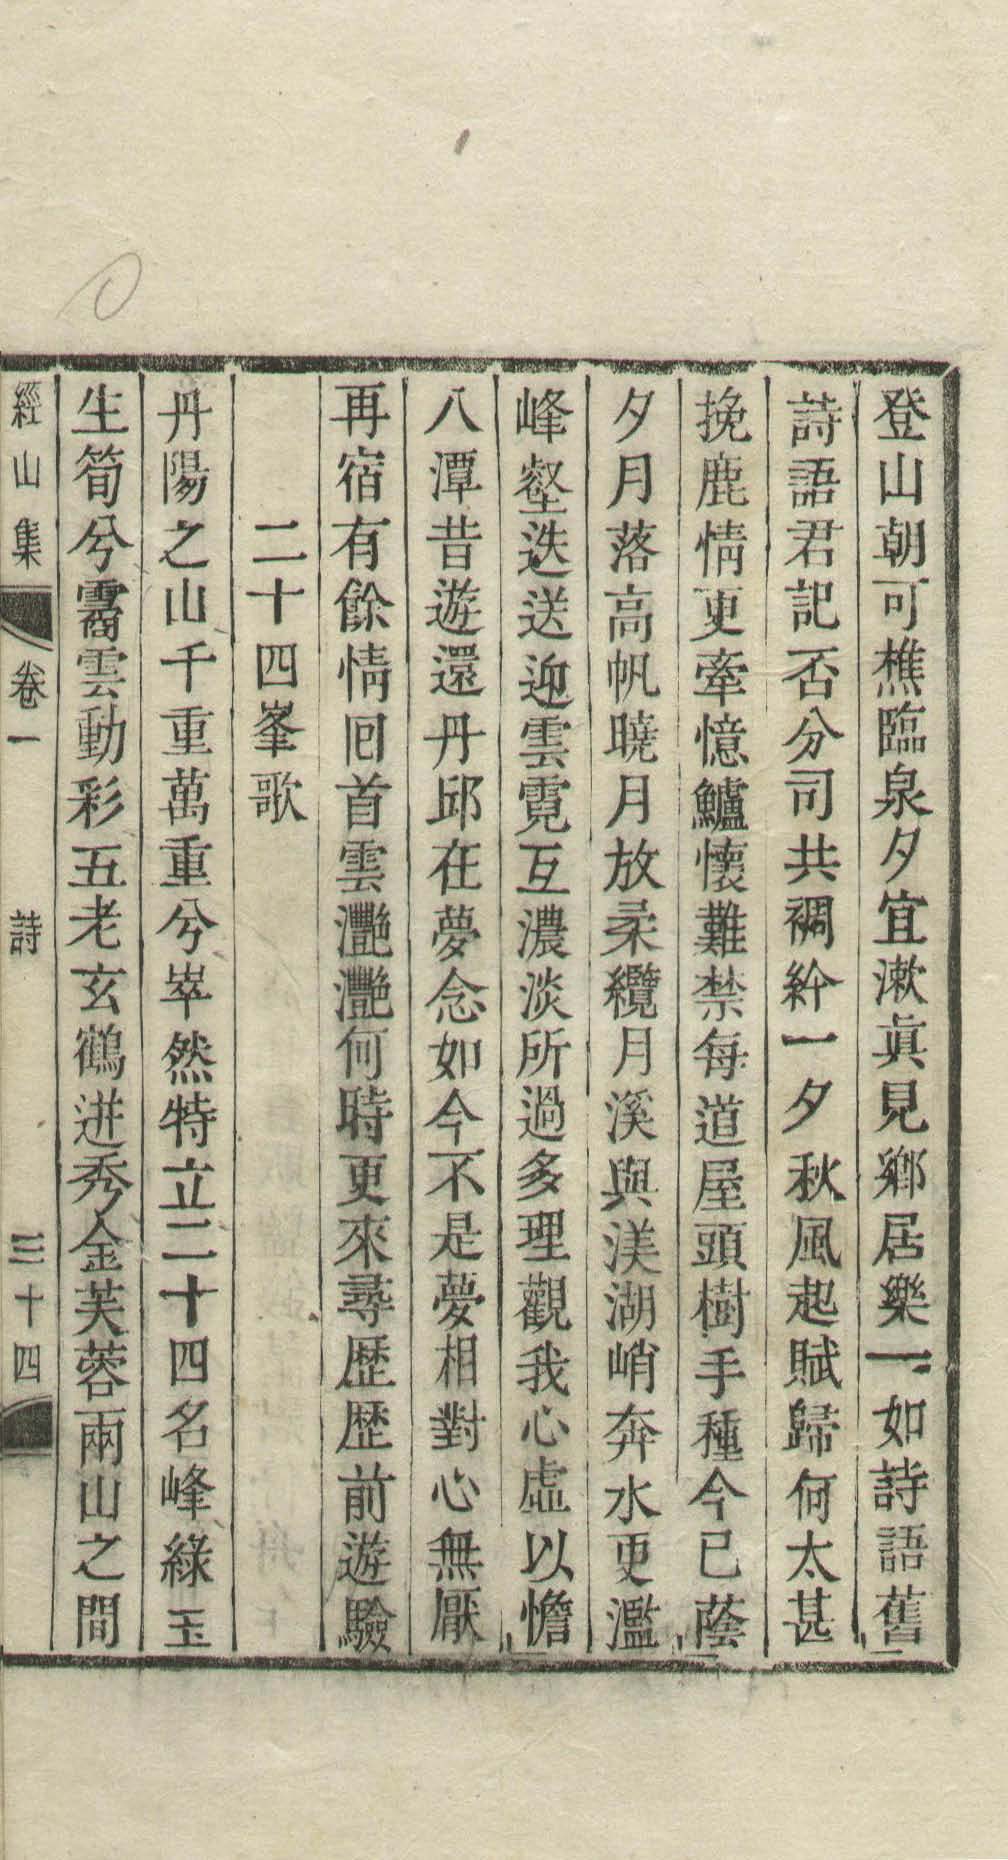 登山朝可樵臨泉夕宜漱眞見鄕居樂一如詩語舊
詩語君記否分司共裯紟一夕秋風起賦歸何太甚
挽鹿情更牽憶鱸懷難禁每道屋頭樹手種今已蔭
夕月落高帆曉月放柔纜月溪與渼湖峭奔水更濫
峰壑迭送迎雲霓互濃淡所過多理觀我心虛以憺
八潭昔遊還丹邱在夢念如今不是夢相對心無厭
再宿有餘情回首雲灎灎何時更來尋歷歷前遊驗
二十四峯歌
丹陽之山千重萬重兮崒然特立二十四名峰綠玉
生筍兮靄雲動彩五老玄鶴迸秀金芙蓉兩山之間
經山集 卷一 詩 三十四